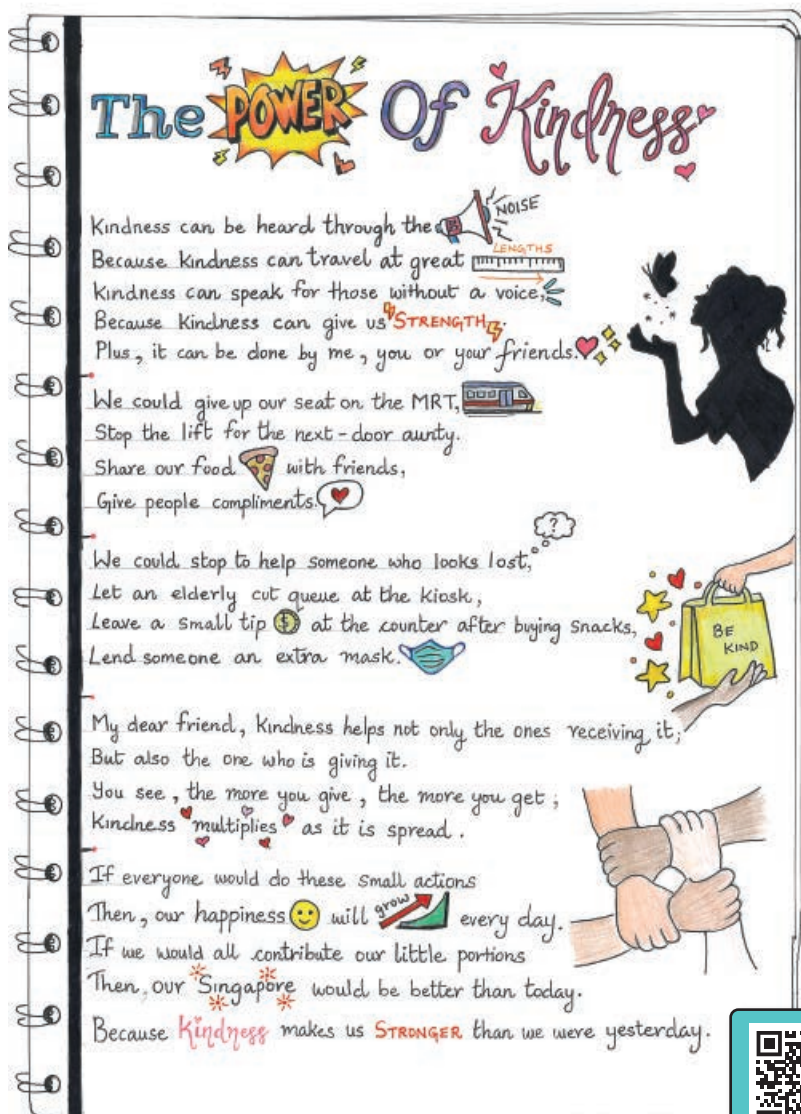 The POWER Of Kindness
Kindness can be heard through the NOISE
Because kindness can travel at great LENGTHS
Kindness can speak for those without a voice,
Because kindness can give us STRENGTH.
Plus, it can be done by me, you or your friends.
We could give up our seat on the MRT,
Stop the lift for the next-door aunty.
Share our food with friends,
Give people compliments.
?
We could stop to help someone who looks lost,
Let an elderly cut queue at the kiosk,
Leave a small tip $ at the counter after buying snacks,
Lend someone an extra mask.
BE
KIND
My dear friend, kindness helps not only the ones receiving it;
But also the one who is giving it.
You see, the more you give, the more you get;
Kindness multiplies as it is spread.
If everyone would do these small actions
Then, our happiness will grow every day.
If we would all contribute our little portions
Then, our Singapore would be better than today.
Because Kindness makes us STRONGER than we were yesterday.